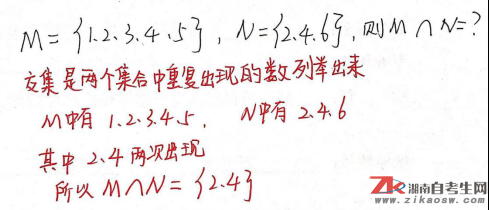 M={1.2.3.4.5}, N={2.4.6}, 则M∩N=?
交集是两个集合中重复出现的数列举出来
M中有 1.2.3.4.5, N中有 2.4.6
其中 2.4 两次出现
所以 M∩N={2.4}
ZK 湖南自考生网
www.zikaosw.com